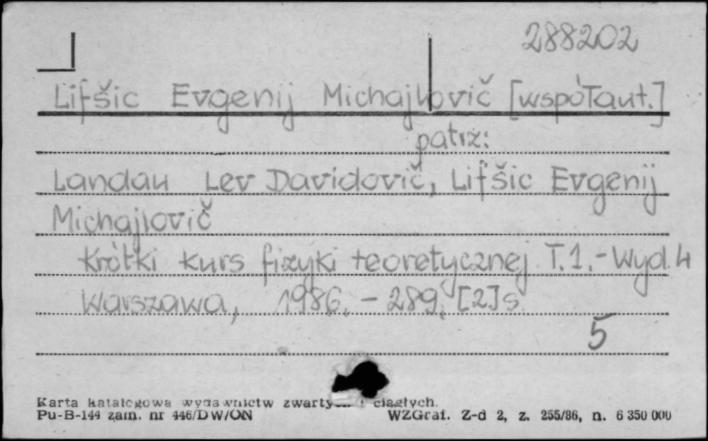 288202
Lifšic Evgenij Michajlovič [współaut.]
patrz:
Landau Lev Davidovič, Lifšic Evgenij
Michajlovič
Krótki kurs fizyki teoretycznej T.1.-Wyd.4
Warszawa, 1986. - 289, [2]s.
5
Karta katalogowa wydawnictw zwartych i ciągłych.
Pu-B-144 zam. nr 446/DW/ON WZGraf. Z-d 2, z. 255/86, n. 6 350 000